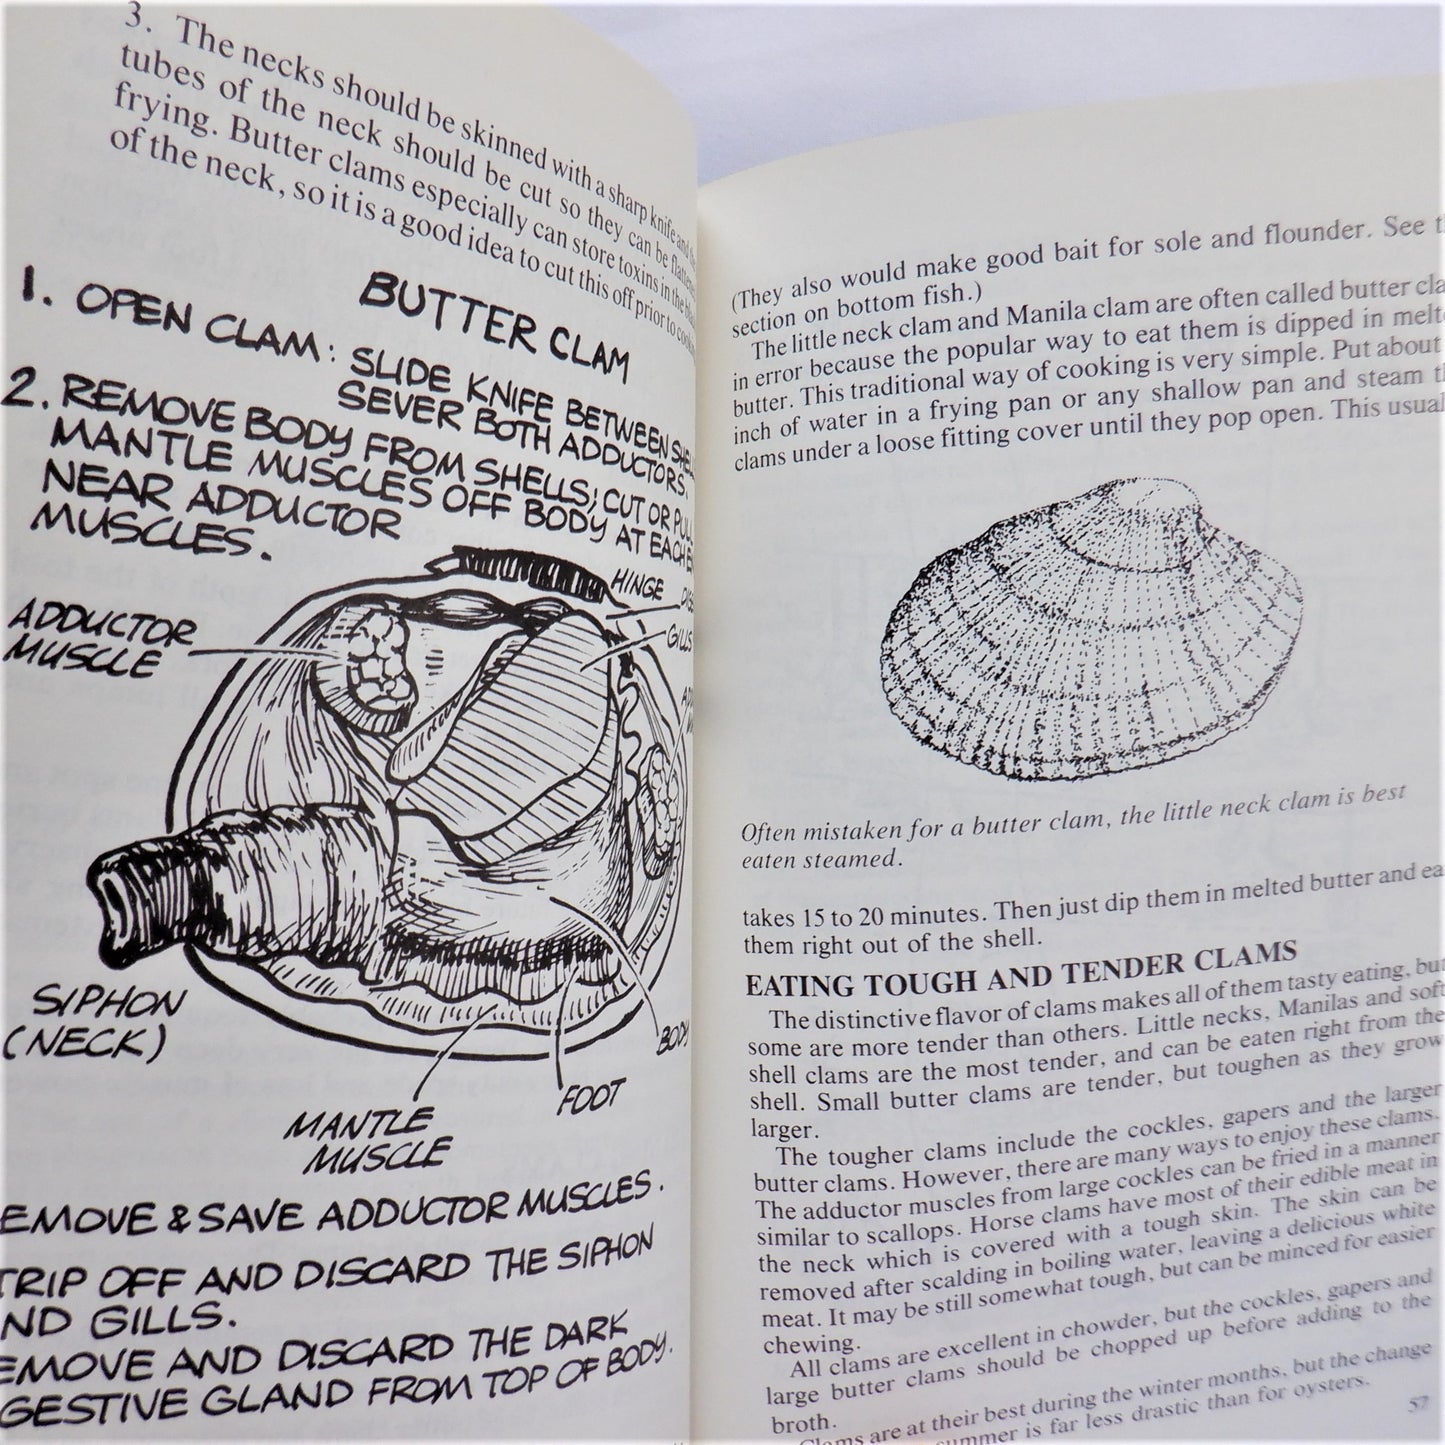 3. The necks should be skinned with a sharp knife and the
tubes of the neck should be cut so they can be flattened
frying. Butter clams especially can store toxins in the
of the neck, so it is a good idea to cut this off prior to cooking
BUTTER CLAM
1. OPEN CLAM: SLIDE KNIFE BETWEEN
SEVER BOTH ADDUCTORS.
2. REMOVE BODY FROM SHELLS; CUT OR
MANTLE MUSCLES OFF BODY AT EACH
NEAR ADDUCTOR
MUSCLES.
HINGE
GILLS
ADDUCTOR
MUSCLE
SIPHON
(NECK)
BODY
FOOT
MANTLE
MUSCLE
EMOVE & SAVE ADDUCTOR MUSCLES.
TRIP OFF AND DISCARD THE SIPHON
ND GILLS.
EMOVE AND DISCARD THE DARK
GESTIVE GLAND FROM TOP OF BODY.
(They also would make good bait for sole and flounder. See
section on bottom fish.)
The little neck clam and Manila clam are often called butter
in error because the popular way to eat them is dipped in
butter. This traditional way of cooking is very simple. Put about
inch of water in a frying pan or any shallow pan and steam
clams under a loose fitting cover until they pop open. This
Often mistaken for a butter clam, the little neck clam is best
eaten steamed.
takes 15 to 20 minutes. Then just dip them in melted butter and
them right out of the shell.
EATING TOUGH AND TENDER CLAMS
The distinctive flavor of clams makes all of them tasty eating, but
some are more tender than others. Little necks, Manilas and soft
shell clams are the most tender, and can be eaten right from the
shell. Small butter clams are tender, but toughen as they grow
larger.
The tougher clams include the cockles, gapers and the larger
butter clams. However, there are many ways to enjoy these clams.
The adductor muscles from large cockles can be fried in a manner
similar to scallops. Horse clams have most of their edible meat in
the neck which is covered with a tough skin. The skin can be
removed after scalding in boiling water, leaving a delicious white
meat. It may be still somewhat tough, but can be minced for easier
chewing.
All clams are excellent in chowder, but the cockles, gapers and
large butter clams should be chopped up before adding to the
broth.
Clams are at their best during the winter months, but the change
summer is far less drastic than for oysters.
57